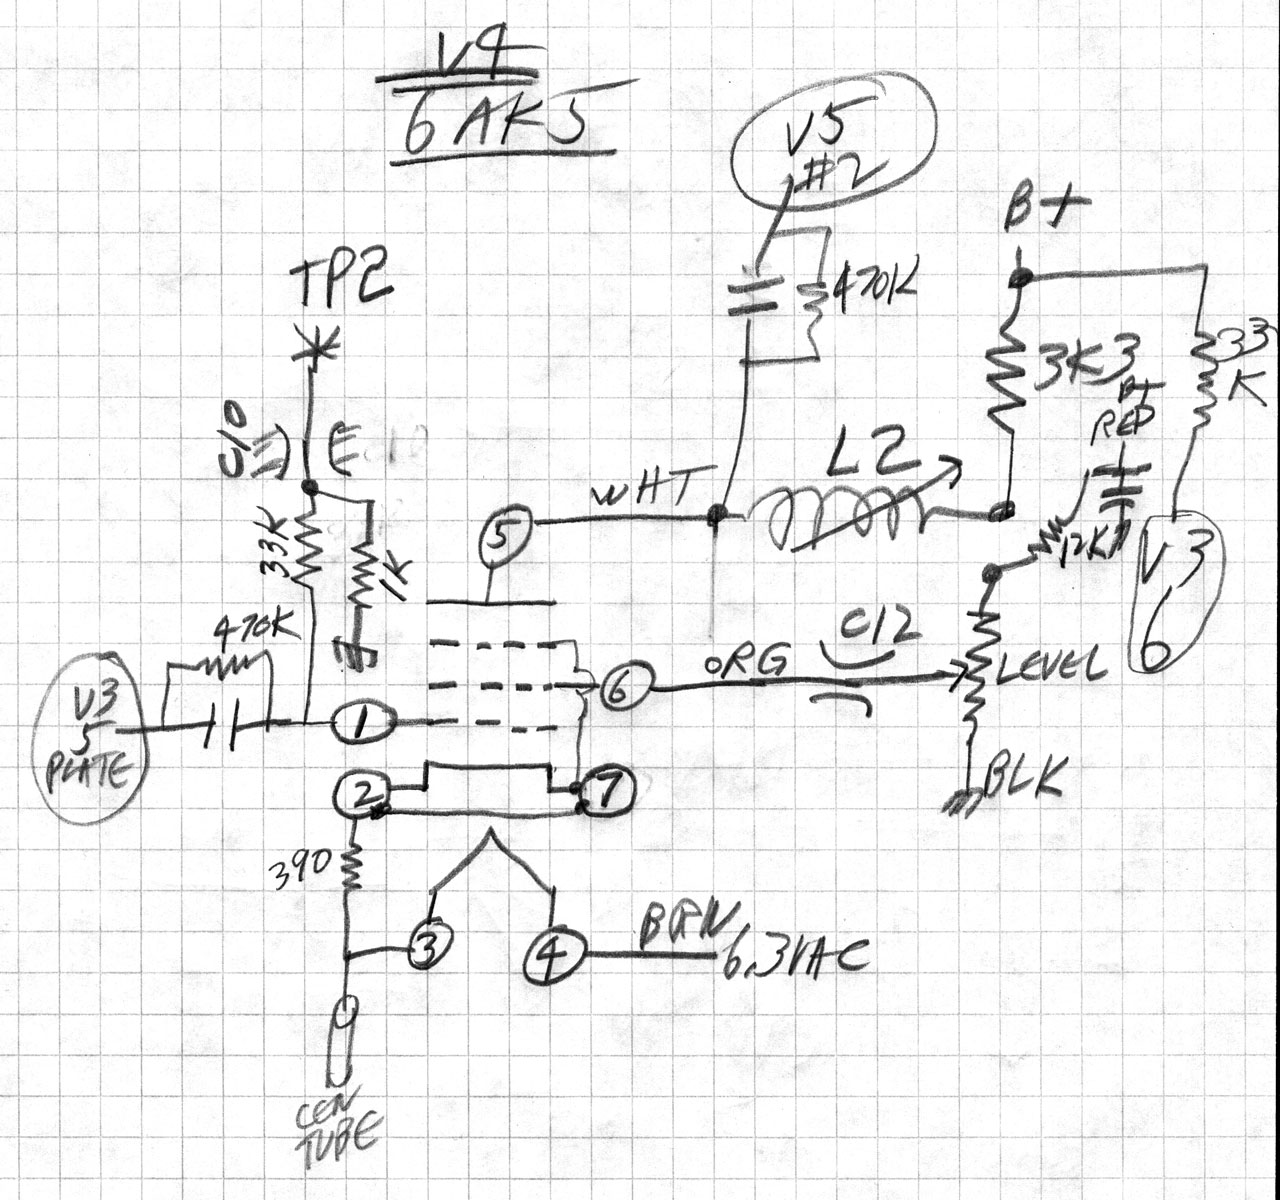 V4
6AK5
V5
#2
B+
TP2
470K
3K3
33
K
B+
RED
C10
L2
WHT
5
33K
1K
12K
V3
6
470K
C12
ORG
6
LEVEL
V3
5
PLATE
1
2
7
BLK
390
3
4
BRN
6.3VAC
CEN
TUBE